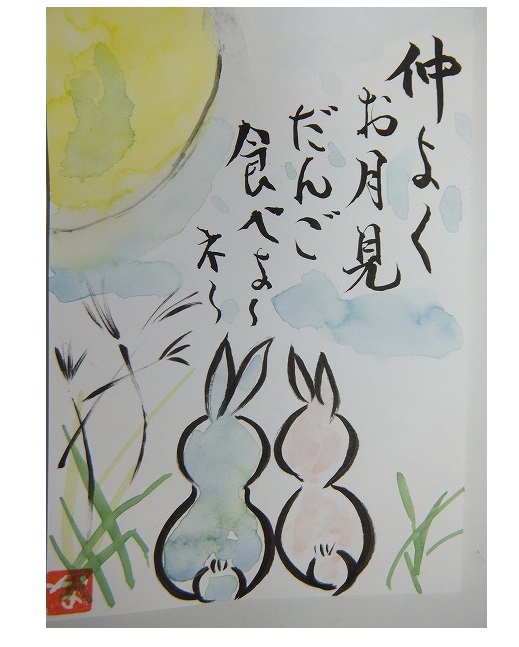 仲よく
お月見
だんご
食べよ〜
ネ〜